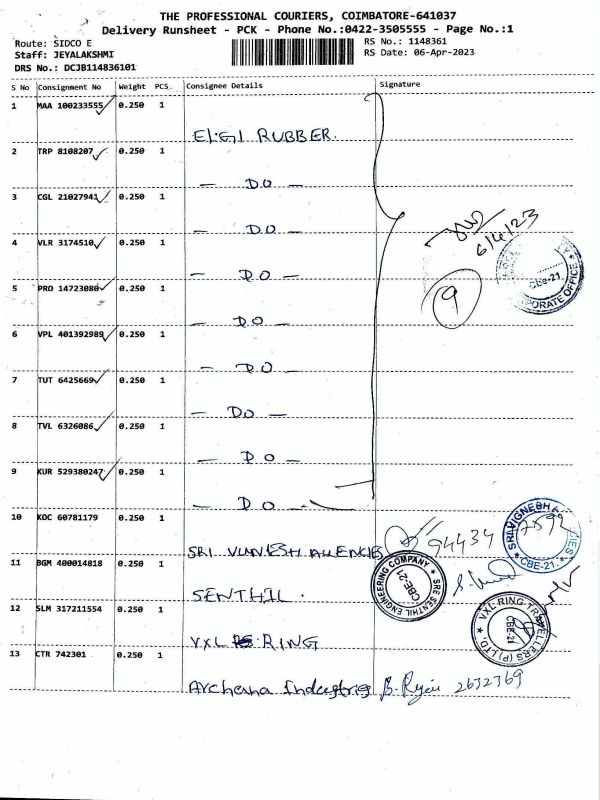 THE PROFESSIONAL COURIERS, COIMBATORE-641037
Delivery Runsheet - PCK - Phone No.:0422-3505555 - Page No.:1
Route: SIDCO E
RS No.: 1148361
Staff: JEYALAKSHMI
RS Date: 06-Apr-2023
DRS No.: DCJB114836101
S No Consignment No Weight PCS Consignee Details Signature
1 MAA 100233555 0.250 1
ELGI RUBBER.
2 TRP 8108207 0.250 1
— DO —
3 CGL 21027941 0.250 1
— DO —
6/4/23
4 VLR 3174510 0.250 1
— DO —
CBE-21
PORATE OFFICE
9
5 PRO 14723080 0.250 1
— DO —
6 VPL 401392989 0.250 1
— DO —
7 TUT 6425669 0.250 1
— DO —
8 TVL 6326086 0.250 1
— DO —
9 KUR 529380247 0.250 1
— DO —
10 KOC 60781179 0.250 1
SRI
94434
SRI VIGNESHA
CBE-21.
11 BGM 400014818 0.250 1
SENTHIL.
SRE SENTHIL ENGINEERING COMPANY
CBE-21
12 SLM 317211554 0.250 1
VXL RING
VXL-RING-TRAVELLERS (P) LTD.
CBE-21
13 CTR 742301 0.250 1
Archana Industries B. 2632369